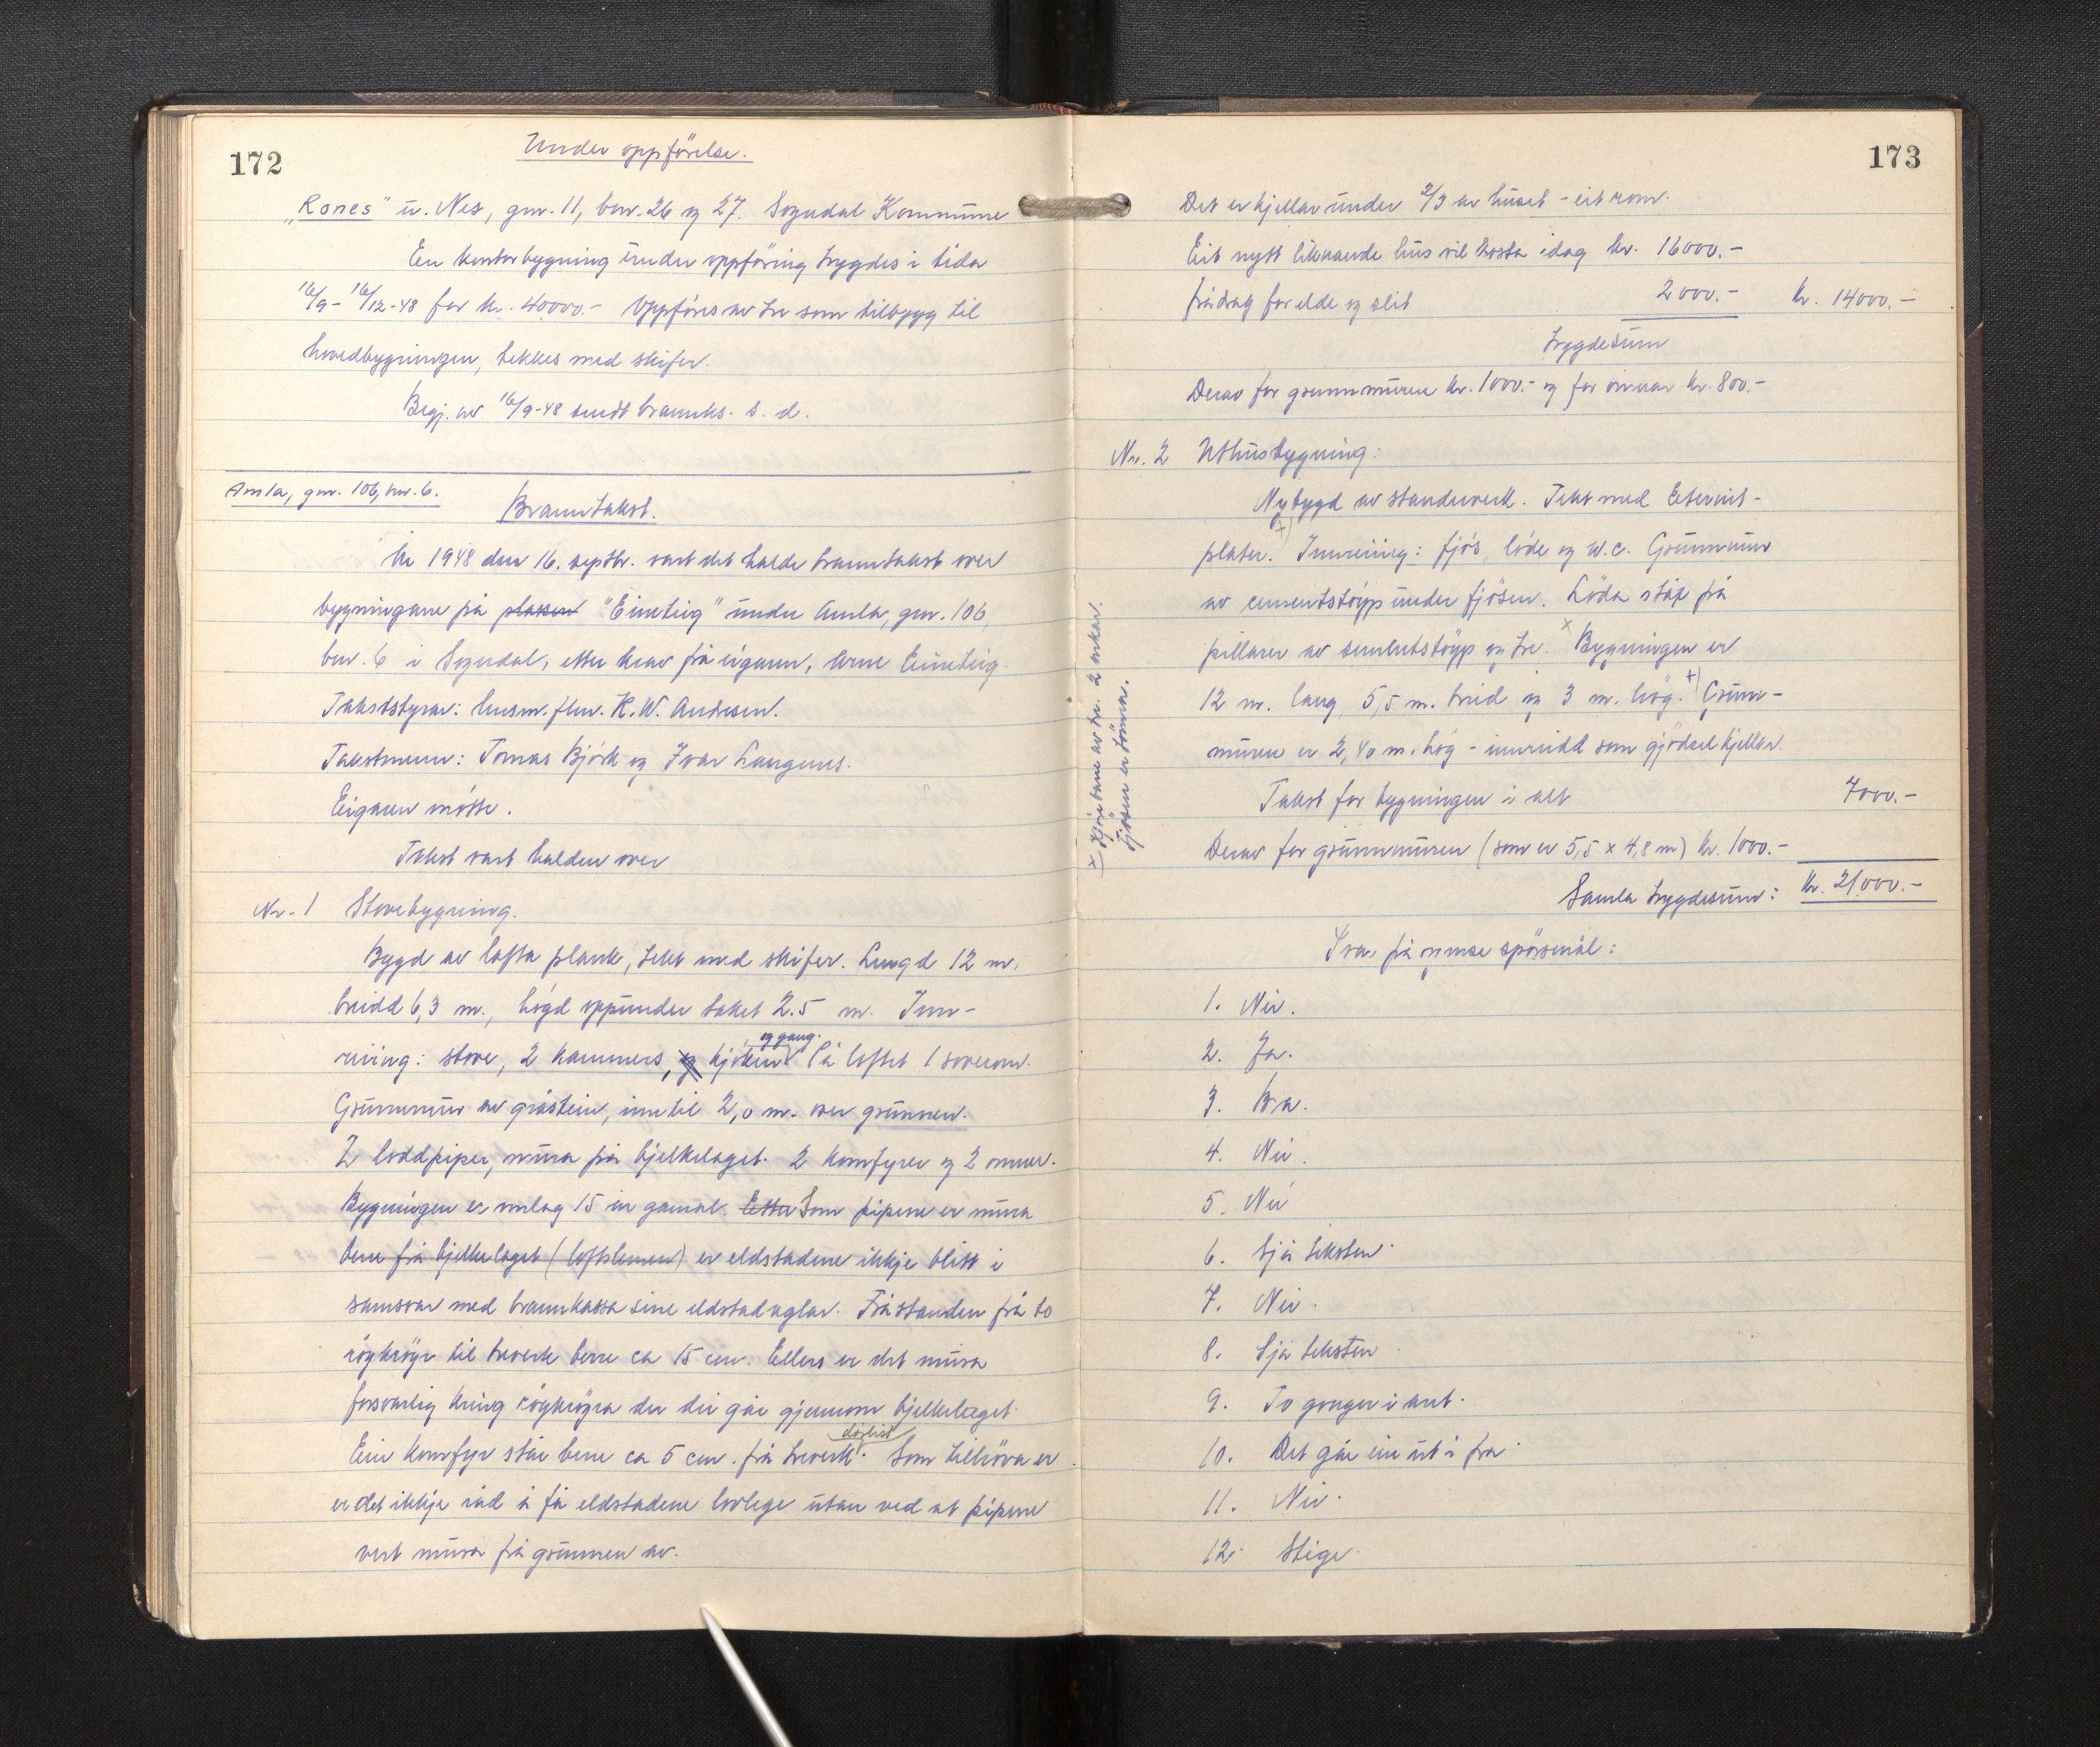 172
Under oppförelse.
„Rones" u. Nes, gnr. 11, bnr. 26 og 27. Sogndal Kommune
En kontorbygning under oppföring trygdes i tida
16/9 - 16/12-48 for kr. 40000.- Oppföres av tre som tilbygg til
hovedbygningen, tekkes med skifer.
Begj. av 16/9-48 sendt brannks. s. d.
Amla, gnr. 106, bnr. 6.
Branntakst.
År 1948 den 16. septbr. vart det halde branntakst over
bygningane på plassen "Eineteig" under Amla, gnr. 106
bnr. 6 i Sogndal, etter krav frå eigaren, Arne Eineteig.
Takststyrar: lensm. flm. K. W. Andresen.
Takstmenn: Tomas Björk og Ivar Langenes.
Eigaren mötte.
Takst vart halden over
Nr. 1 Stovebygning.
Bygd av lafta plank, tekt med skifer. Lengd 12 m,
breidd 6,3 m., högd oppunder taket 2.5 m. Inn-
reiing: stove, 2 kammers, og kjöken og gang. På loftet 1 soverom.
Grunnmur av gråstein, inntil 2,0 m. over grunnen.
2 loddpiper, mura på bjelkelaget. 2 komfyrer og 2 omner.
Bygningen er omlag 15 år gamal. Etter Som pipene er mura
bere frå bjelkelaget (loftslemen) er eldstadene ikkje blitt i
samsvar med brannkassa sine eldstadreglar. Fråstanden frå to
röykröyr til treverk berre ca 15 cm. Ellers er det mura
forsvarlig kring röykröyra der dei går gjennom bjelkelaget.
Ein komfyr står berre ca 5 cm. frå treverk dörlist. Som tilhöva er
er det ikkje råd å få eldstadene lovlege utan ved at pipene
vert mura frå grunnen av.
173
Det er kjellar under 2/3 av huset - eit rom.
Eit nytt liknande hus vil kosta idag kr. 16000.-
frådrag for elde og slit 2000.- kr. 14000.-
trygdesum
Derav for grunnmuren kr. 1000.- og for omnar kr. 800.-
Nr. 2 Uthusbygning:
Nybygd av standerverk. Tekt med Eternit-
plater. Innreiing: fjös, löde og W.C. Grunnmur
av cementstöyp under fjösen. Löda står på
pillarer av sementstöyp og tre. x Bygningen er
12 m. lang, 5,5 m. breid og 3 m. hög. +) Grunn-
muren er 2,40 m. hög - innreidd som gjödselkjellar.
Takst for bygningen i alt 7000.-
Derav for grunnmuren (som er 5,5 x 4,8 m) kr. 1000.-
Samla trygdesum: kr. 21000.-
x Kjörebane av tre. 2 arkar.
Fjösen er tömra.
Svar på ymse spörsmål:
1. Nei.
2. Ja.
3. Bra.
4. Nei.
5. Nei
6. Sjå teksten.
7. Nei.
8. Sjå teksten
9. To gonger i året.
10. Det går ein ut i frå.
11. Nei.
12. Stige.